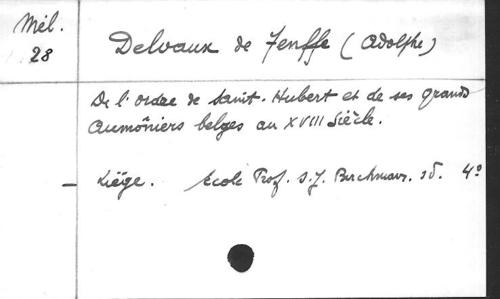 Mél.
28
Delvaux de Fenffe (Adolphe)
De l'ordre de Saint-Hubert et de ses grands
aumôniers belges au XVIII Siècle.
- Liège. Ecole Prof. S.J. Berchmans. sd. 4º